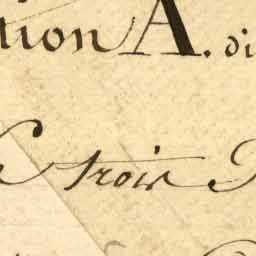 tion A. di
trois